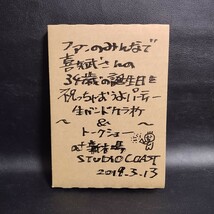 ファンのみんなで
喜矢武さんの
34歳の誕生日を
祝っちゃおうよパーティー
生バンドカラオケ
～&～
トークショー
at 新木場
STUDIO COAST
2019.3.13